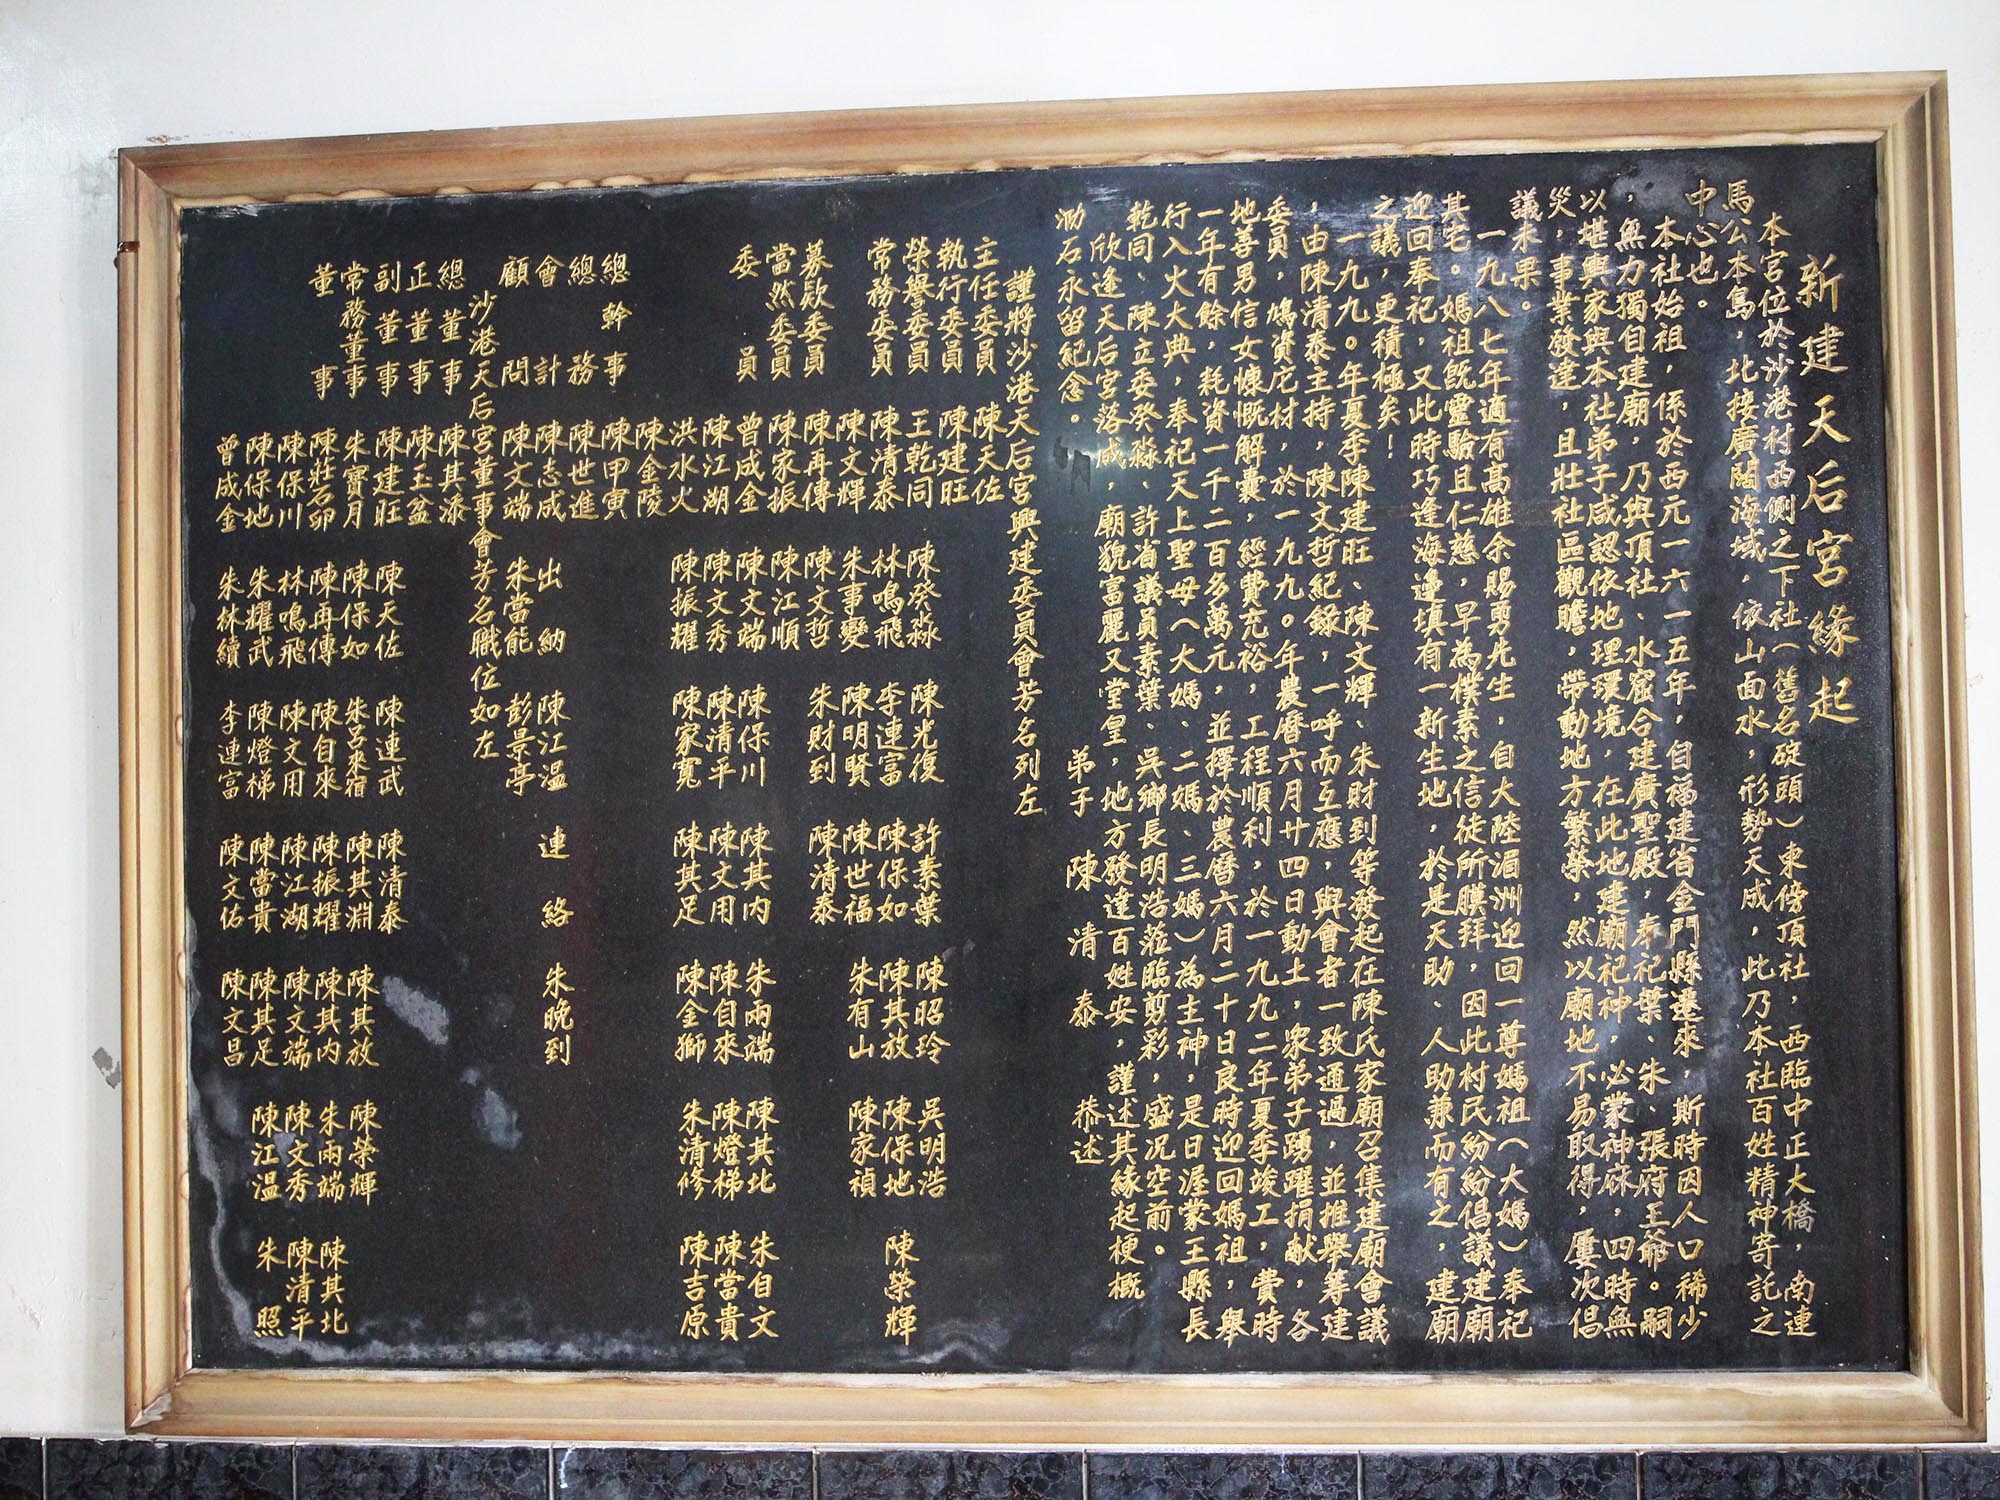 新建天后宮緣起
本宮位於沙港村西側之下社(舊名碇頭)東傍頂社,西臨中正大橋,南連
馬公本島,北接廣闊海域,依山面水,形勢天成,此乃本社百姓精神寄託之
中心也。
本社始祖,係於西元一六一五年,自福建省金門縣遷來,斯時因人口稀少
,無力獨自建廟,乃與頂社、水窟合建廣聖殿,奉祀葉、朱、張府王爺。嗣
以堪輿家與本社弟子咸認依地理環境,在此地建廟祀神,必蒙神庥,四時無
災,事業發達,且壯社區觀瞻,帶動地方繁榮,然以廟地不易取得,屢次倡
議未果。
一九八七年適有高雄余賜勇先生,自大陸湄洲迎回一尊媽祖(大媽)奉祀
其宅。媽祖既靈驗且仁慈,早為樸素之信徒所膜拜,因此村民紛紛倡議建廟
迎回奉祀,又此時巧逢海邊填有一新生地,於是天助、人助兼而有之,建廟
之議,更積極矣!
一九九。年夏季陳建旺、陳文輝、朱財到等發起在陳氏家廟召集建廟會議
,由陳清泰主持,陳文哲紀錄,一呼而互應,與會者一致通過,並推舉籌建
委員,鳩資庀材,於一九九。年農曆六月廿四日動土,眾弟子踴躍捐献,各
地善男信女慷慨解囊,經費充裕,工程順利,於一九九二年夏季竣工,費時
一年有餘,耗資一千二百多萬元,並擇於農曆六月二十日良時迎回媽祖,舉
行入火大典,奉祀天上聖母(大媽、二媽、三媽)為主神,是日渥蒙王縣長
乾同、陳立委癸淼、許省議員素葉、吳鄉長明浩蒞臨剪彩,盛況空前。
欣逢天后宮落成,廟貌富麗又堂皇,地方發達百姓安,謹述其緣起梗概
泐石永留紀念。 弟子 陳清泰 恭述
謹將沙港天后宮興建委員會芳名列左
主任委員 陳天佐
執行委員 陳建旺
榮譽委員 王乾同 陳癸淼 陳光復 許素葉 陳昭玲 吳明浩
常務委員 陳清泰 林鳴飛 李連富 陳保如 陳其放 陳保地 陳榮輝
陳文輝 朱事變 陳明賢 陳世福 朱有山 陳家禎
募款委員 陳再傳 陳文哲 朱財到 陳清泰
當然委員 陳家振 陳江順
委員 曾成金 陳文端 陳保川 陳其內 朱兩端 陳其北 朱自文
陳江湖 陳文秀 陳清平 陳文用 陳自來 陳燈梯 陳當貴
洪水火 陳振耀 陳家寬 陳其足 陳金獅 朱清修 陳吉原
陳金陵
總幹事 陳甲寅
總務 陳世進
會計 陳志成 出納 陳江溫 連絡 朱晚到
顧問 陳文端 朱當能 彭景亭
沙港天后宮董事會芳名職位如左
總董事 陳其漆
正董事 陳玉盆
副董事 陳建旺 陳天佐 陳連武 陳清泰
常務董事 朱寶月 陳保如 朱呂來宿 陳其淵 陳其放 陳榮輝
董事 陳莊石卯 陳再傳 陳自來 陳振耀 陳其內 朱兩端 陳其北
陳保川 林鳴飛 陳文用 陳江湖 陳文端 陳文秀 陳清平
陳保地 朱耀武 陳燈梯 陳當貴 陳其足 陳江溫 朱照
曾成金 朱林續 李連富 陳文佑 陳文昌